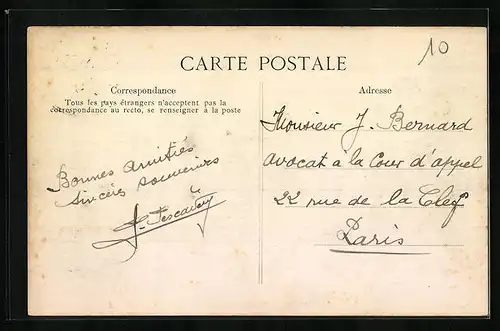 10
CARTE POSTALE
Correspondance
Tous les pays étrangers n'acceptent pas la
correspondance au recto, se renseigner à la poste
Bonnes amitiés
sincères souvenirs
Adresse
Monsieur J. Bernard
avocat a la Cour d'appel
22 rue de la Clef
Paris